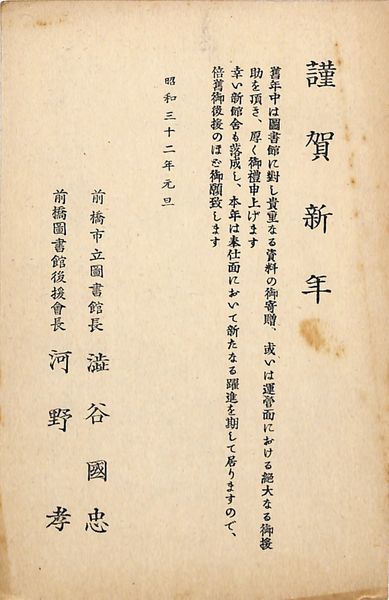 謹賀新年
舊年中は圖書館に對し貴重なる資料の御寄贈、或いは運營面における絕大なる御援
助を頂き、厚く御禮申上げます
幸い新館舍も落成し、本年は奉仕面において新たなる躍進を期して居りますので、
倍舊御後援のほど御願致します
昭和三十二年元旦
前橋市立圖書館長 澁谷國忠
前橋圖書館後援會長 河野孝